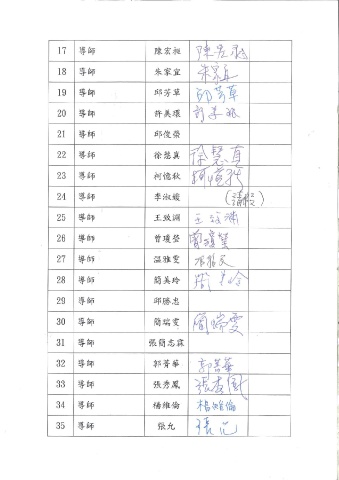 17 導師 陳宏昶
18 導師 朱家宜 朱家宜
19 導師 邱芳草 邱芳草
20 導師 許美環 許美環
21 導師 邱俊榮
22 導師 徐慧真 徐慧真
23 導師 柯憶秋 柯憶秋
24 導師 李淑媛
25 導師 王致淵 王致淵
26 導師 曾瓊瑩 曾瓊瑩
27 導師 溫雅雯
28 導師 簡美玲
29 導師 邱勝忠
30 導師 簡瑞雯 簡瑞雯
31 導師 張簡志霖
32 導師 郭菁華 郭菁華
33 導師 張秀鳳 張秀鳳
34 導師 楊維倫 楊維倫
35 導師 張允 張允